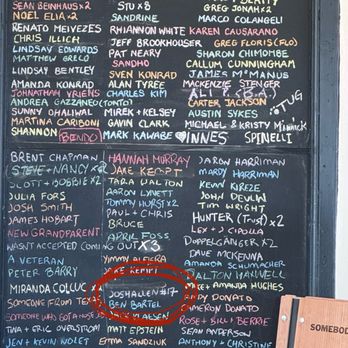 SEAN BEINHAUS x2
NOEL ELIA x2
RENATO MEIVEZES
CHRIS ILLICH
LINDSAY EDWARDS
MATTHEW GRECO
LINDSAY BENTLEY
AMANDA KONRAD
JOHNATHAN VRIENS
ANDREA GAZZANEO (TONTO)
SUNNY OHALIWAL
MARTINA CARIBONI
SHANNON BENDO
STU x8
SANDRINE
RHIANNON WHITE
JEFF BROOKHOUSER
PAT NEARY
SANDHO
SVEN KONRAD
ALAN TYREE
CHARLES KIM
MIREK + KELSEY
GAVIN CLARK
MARK KAWABE
GREG JONAH x2
MARCO COLANGELI
KAREN CAUSARANO
GREG FLORIS (FLO)
SHARON CHIMOMBE
CALLUM CUNNINGHAM
JAMES McMANUS
MACKENZIE STENGER
CARTER JACKSON
STUG
AUSTIN SYKES
MICHAEL & KRISTY
INNES SPINELLI
BRENT CHAPMAN
STEVE + NANCY x2
SCOTT + BOBBIE x2
JULIA FORS
JOSH SMITH
JAMES HOBART
NEW GRANDPARENT
WASN'T ACCEPTED COMING OUT x3
A VETERAN
PETER BARRY
MIRANDA COLUCC
SOMEONE FROM TE
SOMEONE WHO GOT A
TINA + ERIC OVERSTROM
JEN + KEVIN NOLET
HANNAH MURRAY
JAKE KEMPT
TARA DALTON
AARON LYNETT
TOMMY HURST x2
PAUL + CHRIS
BRUCE
APRIL FOSS
JAKE KEMPT
JOSHALLEN #17
BEN BARTEL
MATT EPSTEIN
EMMA SANDZIUK
JARON HARRIMAN
MARDY HARRIMAN
KEVIN KIREZE
JOHN DEVLIN
TIM WRIGHT
HUNTER (TRUST) x2
LEX + J CIPOLLA
DOPPELGANGER x2
DAVE MCKENNA
AMANDA SCHUMACHER
DALTON MAXWELL
AMANDA HUGHES
ANDY DONATO
CAMERON DONATO
ROSE + BILL + BERRIE
SEAN ANDERSON
ANTHONY + CHRISTIE
SOMEBOD